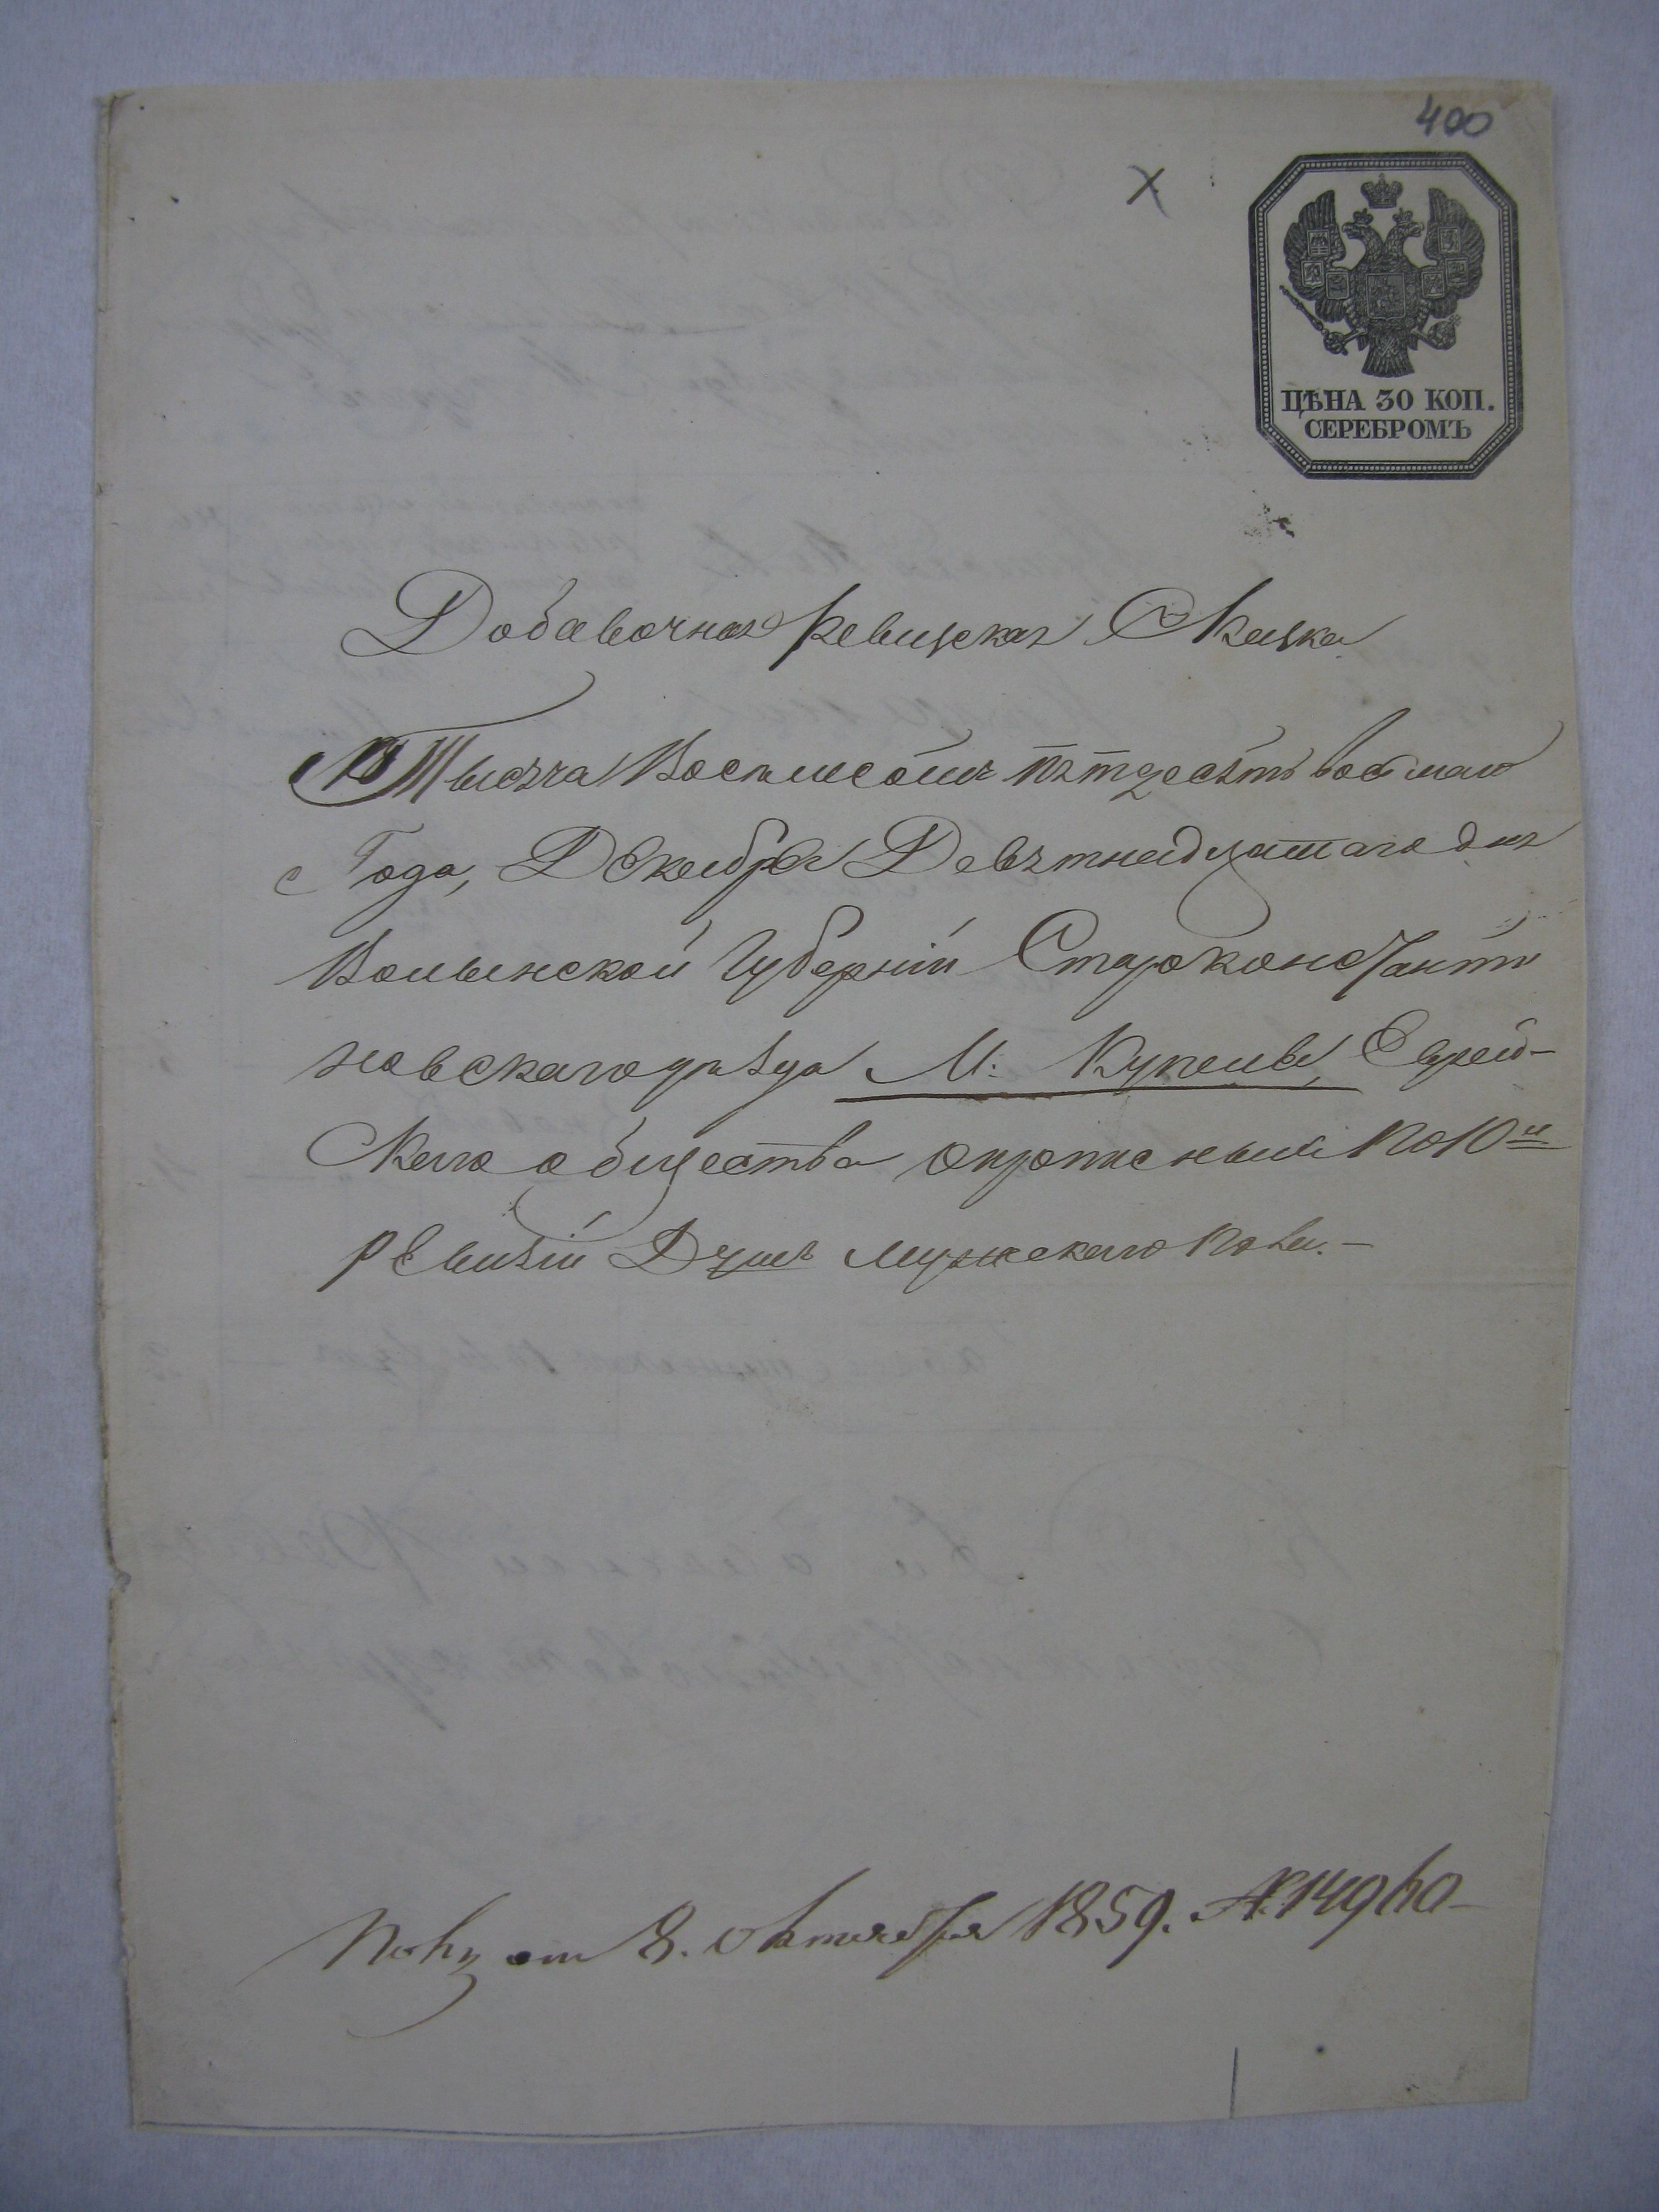 400
ЦѢНА 30 КОП.
СЕРЕБРОМЪ
Добавочная Ревизская Скаска
Тысяча Восемьсотъ пятдесятъ восмаго
Года, Декабря Девятнадцатаго дня
Волынской Губерніи Староконстанти
новскаго уѣзда М. Купеля, Еврей-
скаго общества опрописныхъ по 10й
ревизіи Душъ мужескаго пола.-
от 8. Октября 1859. №